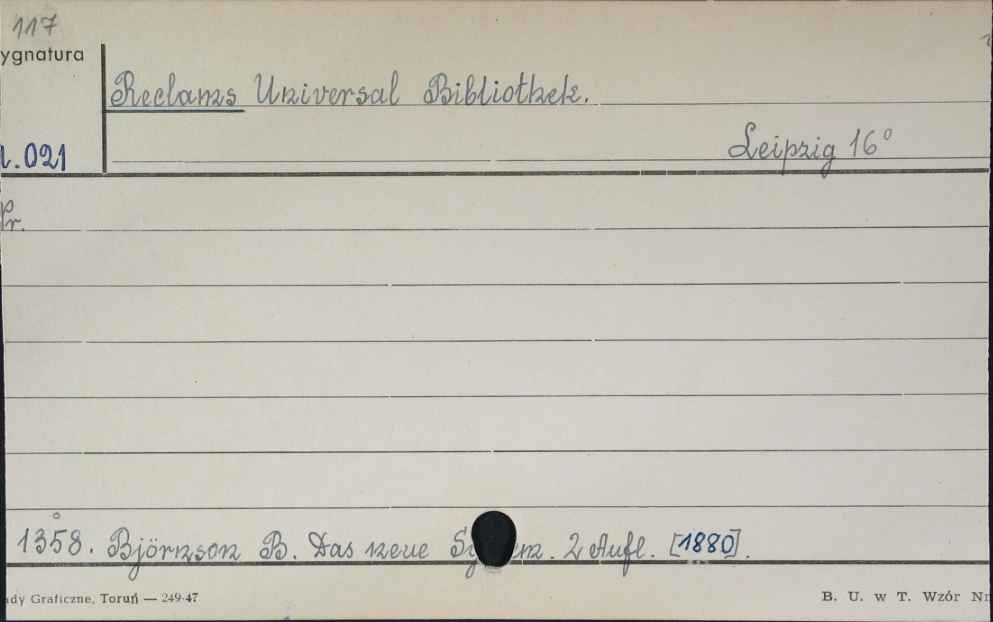 117
ygnatura
Reclams Universal Bibliothek.
Leipzig 16°
1.021
Pr.
1358. Björnson B. Das neue 2 Aufl. [1880].
ady Graficzne, Toruń — 249-47
B. U. w T. Wzór Nr